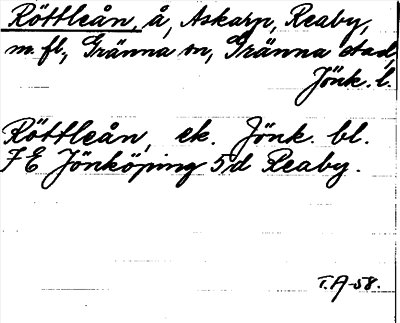 Röttleån, å, Askarp, Reaby,
m. fl, Gränna sn, Gränna stad,
Jönk. l.
Röttleån, ek. Jönk. bl.
7E Jönköping 5d Reaby.
T.A-58.